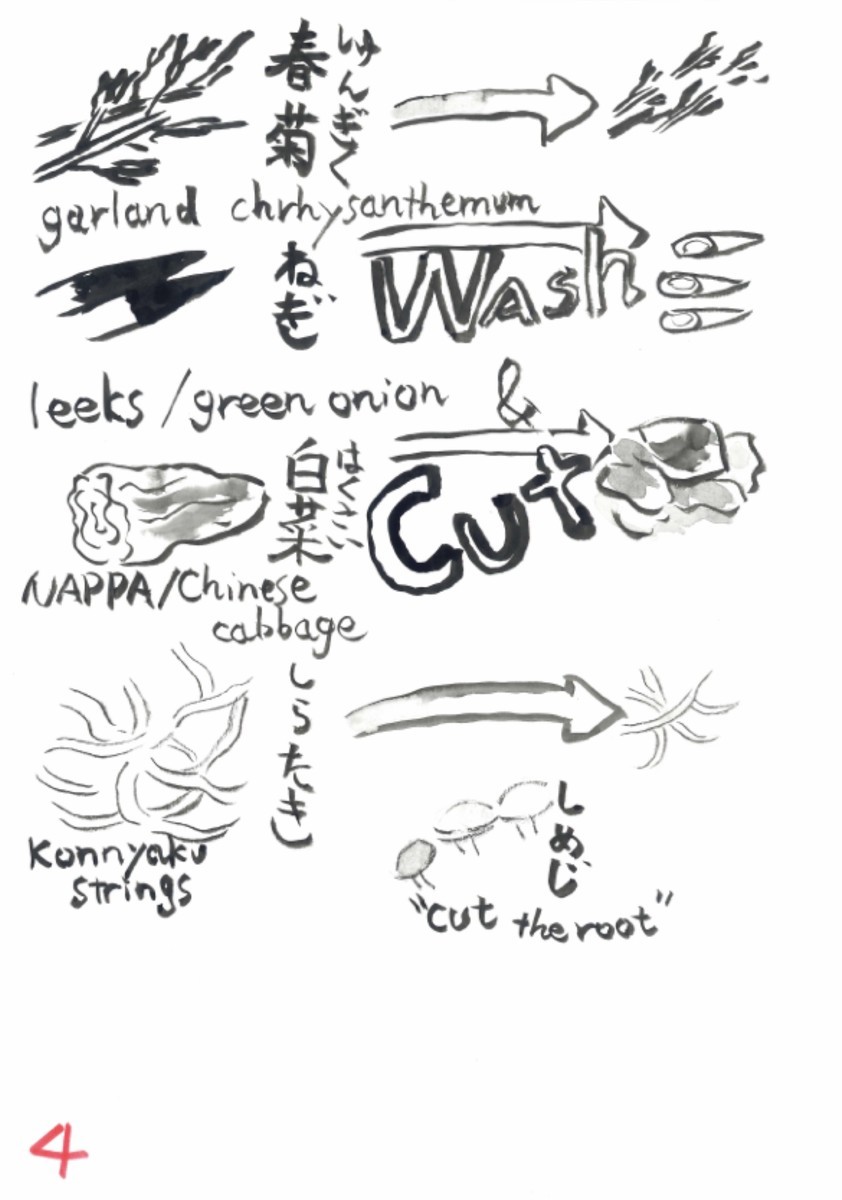 春菊
しゅんぎく
garland chrhysanthemum
ねぎ
Wash
leeks/green onion
&
白菜
はくさい
Cut
NAPPA/Chinese
cabbage
しらたき
Konnyaku
strings
しめじ
"cut the root"
4